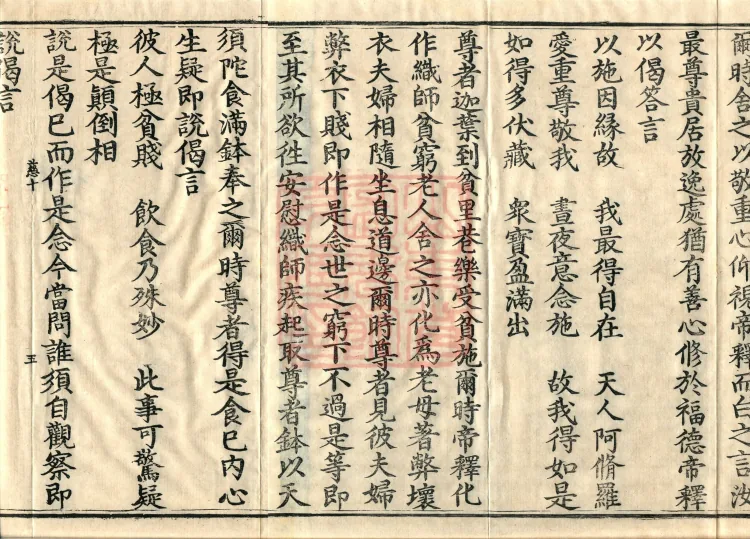 爾時舍之以敬重心仰視帝釋而白之言汝
最尊貴居放逸處猶有善心修於福德帝釋
以偈答言
以施因緣故　我最得自在　天人阿脩羅
愛重尊敬我　晝夜意念施　故我得如是
如得多伏藏　衆寶盈滿出
尊者迦葉到貧里巷樂受貧施爾時帝釋化
作織師貧窮老人舍之亦化爲老母著弊壞
衣夫婦相隨坐息道邊爾時尊者見彼夫婦
弊衣下賤即作是念世之窮下不過是等即
至其所欲徃安慰織師疾起取尊者鉢以天
須陀食滿鉢奉之爾時尊者得是食巳内心
生疑即說偈言
彼人極貧賤　飲食乃殊妙　此事可驚疑
極是顛倒相
說是偈巳而作是念今當問誰須自觀察即
說偈言